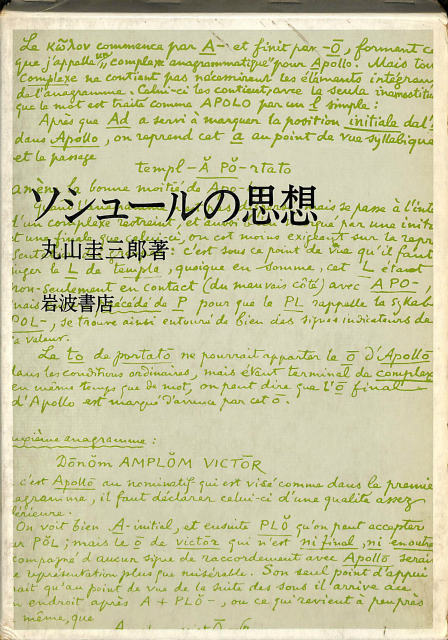 Le κῶλον commence par A- et finit par -Ō, forment c
que j'appelle un "complexe anagrammatique" pour Apollo. Mais tou
complexe ne contient pas nécessairement les éléments intégran
de l'anagramme. Celui-ci les contient, avec la seule
que le mot est traité comme APOLO par un l simple :
Après que Ad a servi à marquer la position initiale de l'
dans Apollo, on reprend cet a au point de vue syllabique
et le passage
templ-Ă PŎ-rtato
amène la bonne moitié de Apo
ソシュールの思想
mais se passe à l'inté
d'un complexe restreint, et par une init
et une finale que celui-ci, on est moins exigeant sur la repr
丸山圭三郎著
c'est sous ce point de vue qu'il faut
juger le L de templa, quoique en somme, cet L étant
non-seulement en contact (du mauvais côté) avec APO-,
岩波書店
mais précédé de P pour que le PL rappelle la syllab
POL-, se trouve ainsi entouré de bien des signes indicateurs de
sa valeur.
Le to de portatō ne pourrait apporter le ō d'Apollō
dans les conditions ordinaires, mais étant terminal de complexe
en même temps que de mot, on peut dire que l'ō final
d'Apollo est marqué d'avance par cet ō.
uxième anagramme :
Dōnŏm AMPLŎM VICTŌR
c'est Apollo au nominatif qui est visé comme dans le premie
agramme, il faut déclarer celui-ci d'une qualité assez
férieure.
On voit bien A-initial, et ensuite PLŎ qu'on peut accepter
ur PŎL ; mais le ō de victōr qui n'est ni final, ni entouré
compagné d'aucun signe de raccordement avec Apollo serai
e représentation plus que misérable. Son seul point d'appui
rait qu'au point de vue de la suite des sons il arrive au
n endroit après A + PLŎ-, ou ce qui revient à peu près
même, que